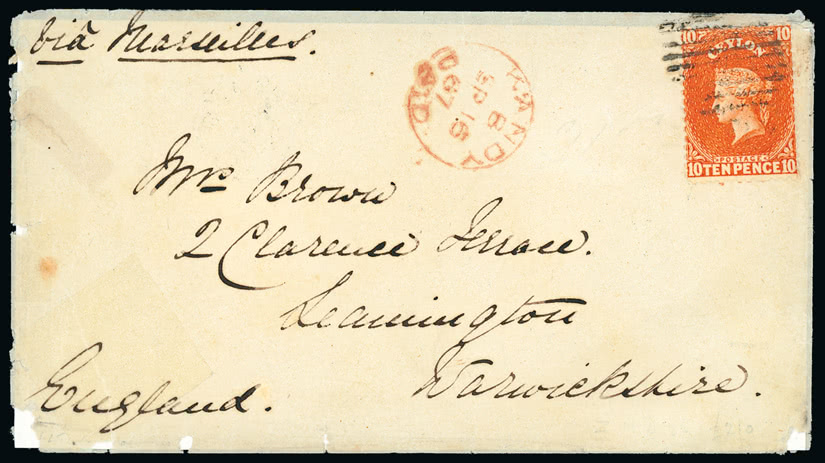 via Marseilles.
10 10
CEYLON
POSTAGE
10 TEN PENCE 10
KANDY
8
SP 16
67
PAID
Mrs Brown
2 Clarence Terrace.
Leamington
Warwickshire.
England.